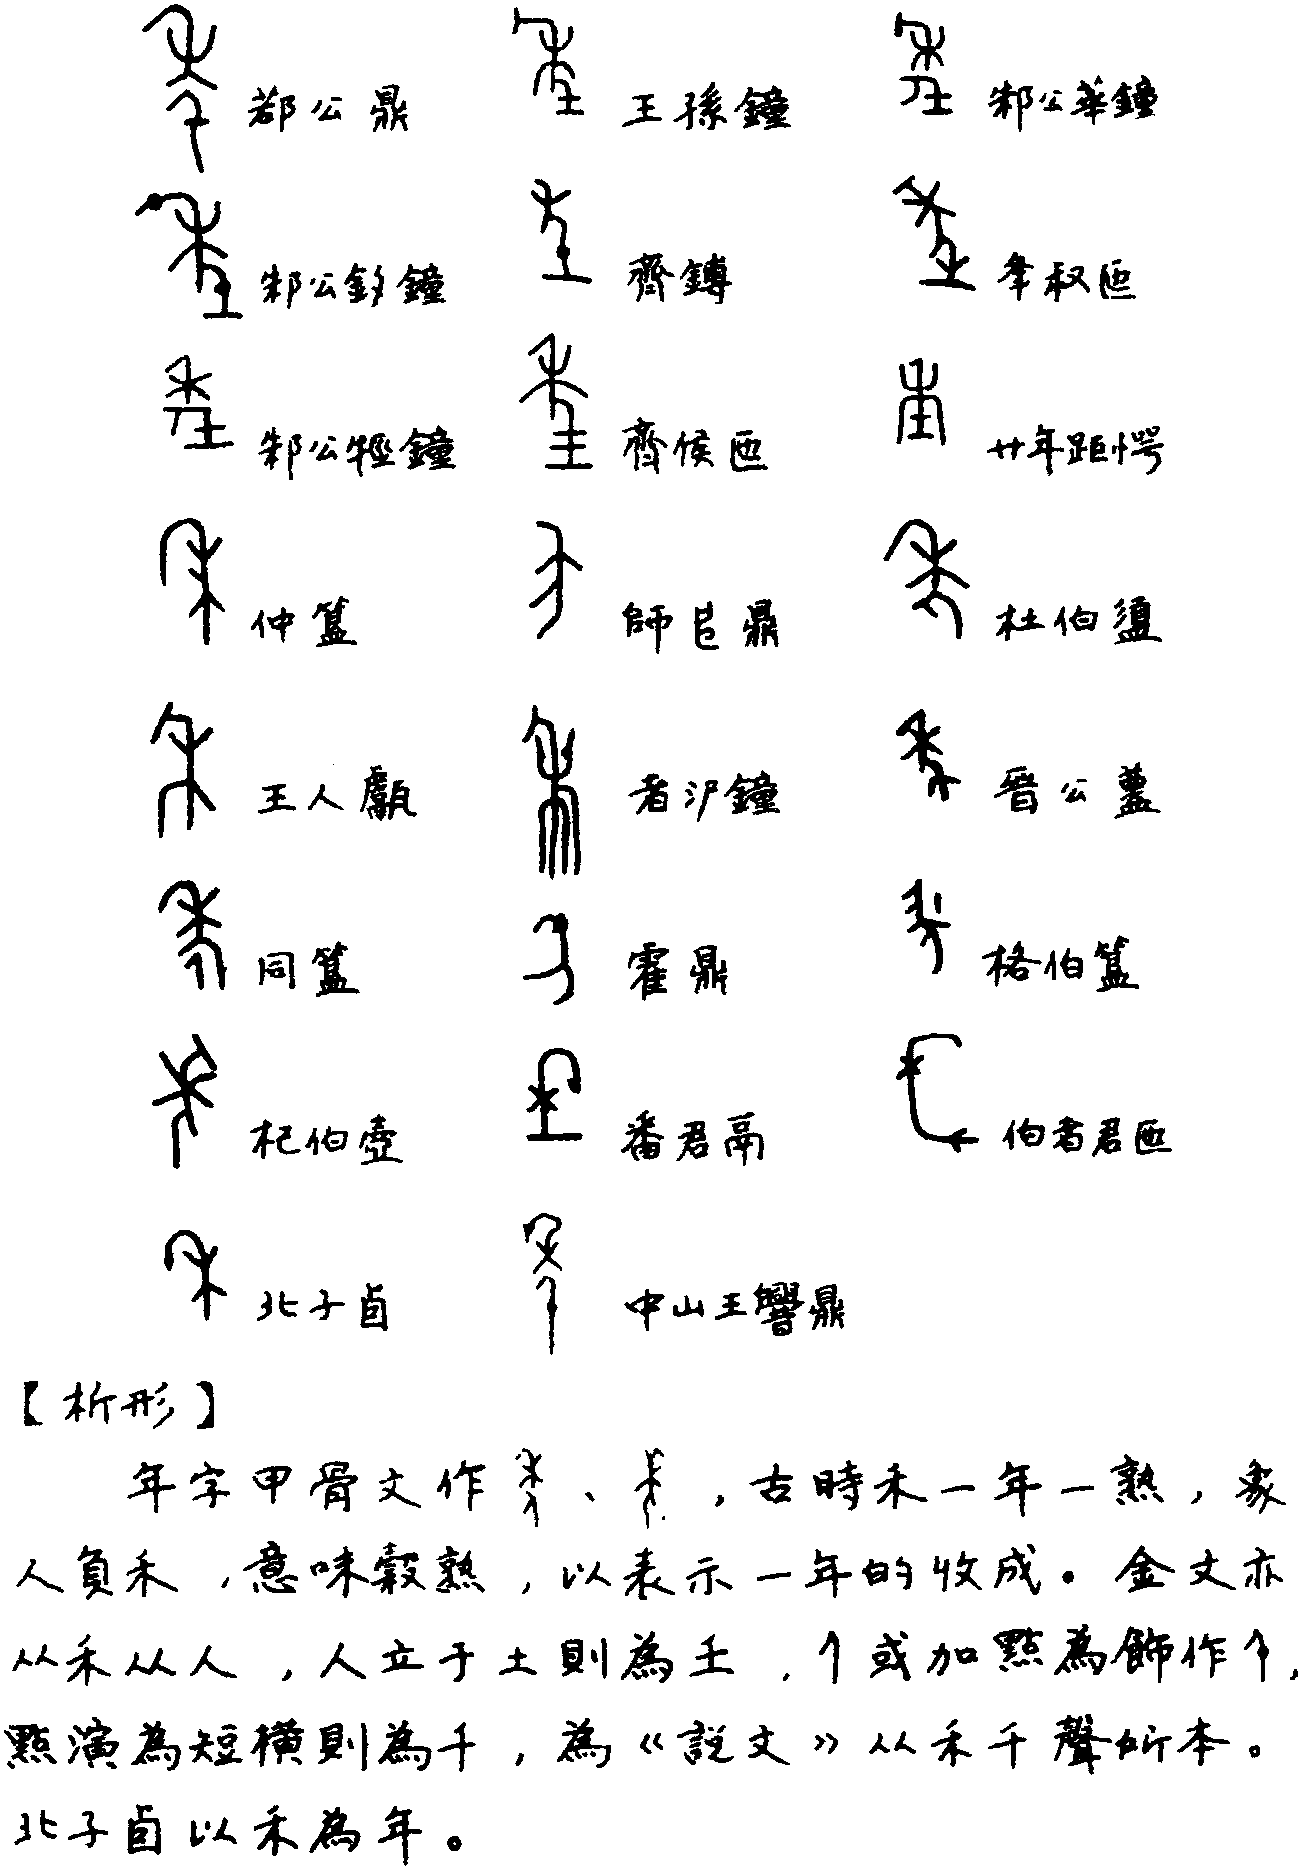 鄀公鼎 王孫鐘 邾公華鐘
邾公釛鐘 齊鎛 夆叔匜
邾公牼鐘 齊侯匜 廿年距愕
仲簋 師𠂤鼎 杜伯盨
王人甗 者沪鐘 晉公𥂴
同簋 霍鼎 格伯簋
杞伯壺 番君鬲 伯者君匜
北子卣 中山王譽鼎
【析形】
年字甲骨文作 、 ，古時禾一年一熟，象
人負禾，意味穀熟，以表示一年的收成。金文亦
从禾从人，人立于土則為壬，亻或加點為飾作 ，
點演為短橫則為千，為《説文》从禾千聲所本。
北子卣以禾為年。